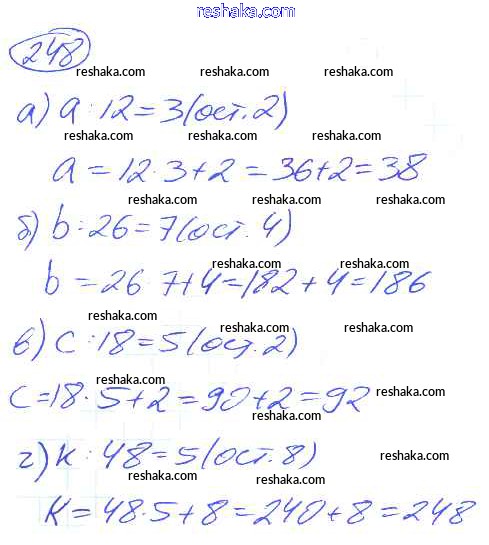 reshaka.com
248
reshaka.com reshaka.com reshaka.com
а) a : 12 = 3 (ост. 2)
reshaka.com reshaka.com
a = 12 · 3 + 2 = 36 + 2 = 38
reshaka.com reshaka.com reshaka.com
б) b : 26 = 7 (ост. 4)
reshaka.com reshaka.com
b = 26 7 + 4 = 182 + 4 = 186
reshaka.com reshaka.com reshaka.com
в) c : 18 = 5 (ост. 2)
reshaka.com reshaka.com
c = 18 · 5 + 2 = 90 + 2 = 92
reshaka.com
г) k : 48 = 5 (ост. 8)
reshaka.com reshaka.com reshaka.com
k = 48 · 5 + 8 = 240 + 8 = 248
reshaka.com reshaka.com